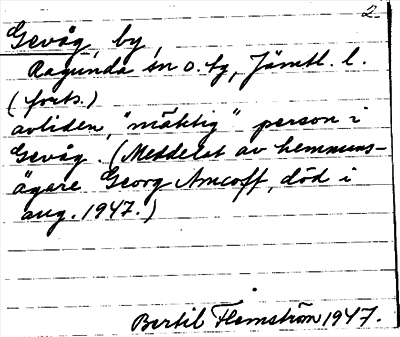 2.
Gevåg, by,
Ragunda sn o. tg, Jämtl. l.
(forts.)
avliden, "mäktig" person i
Gevåg. (Meddelat av hemmans-
ägare Georg Amcoff, död i
aug. 1947.)
Bertil Flemström 1947.